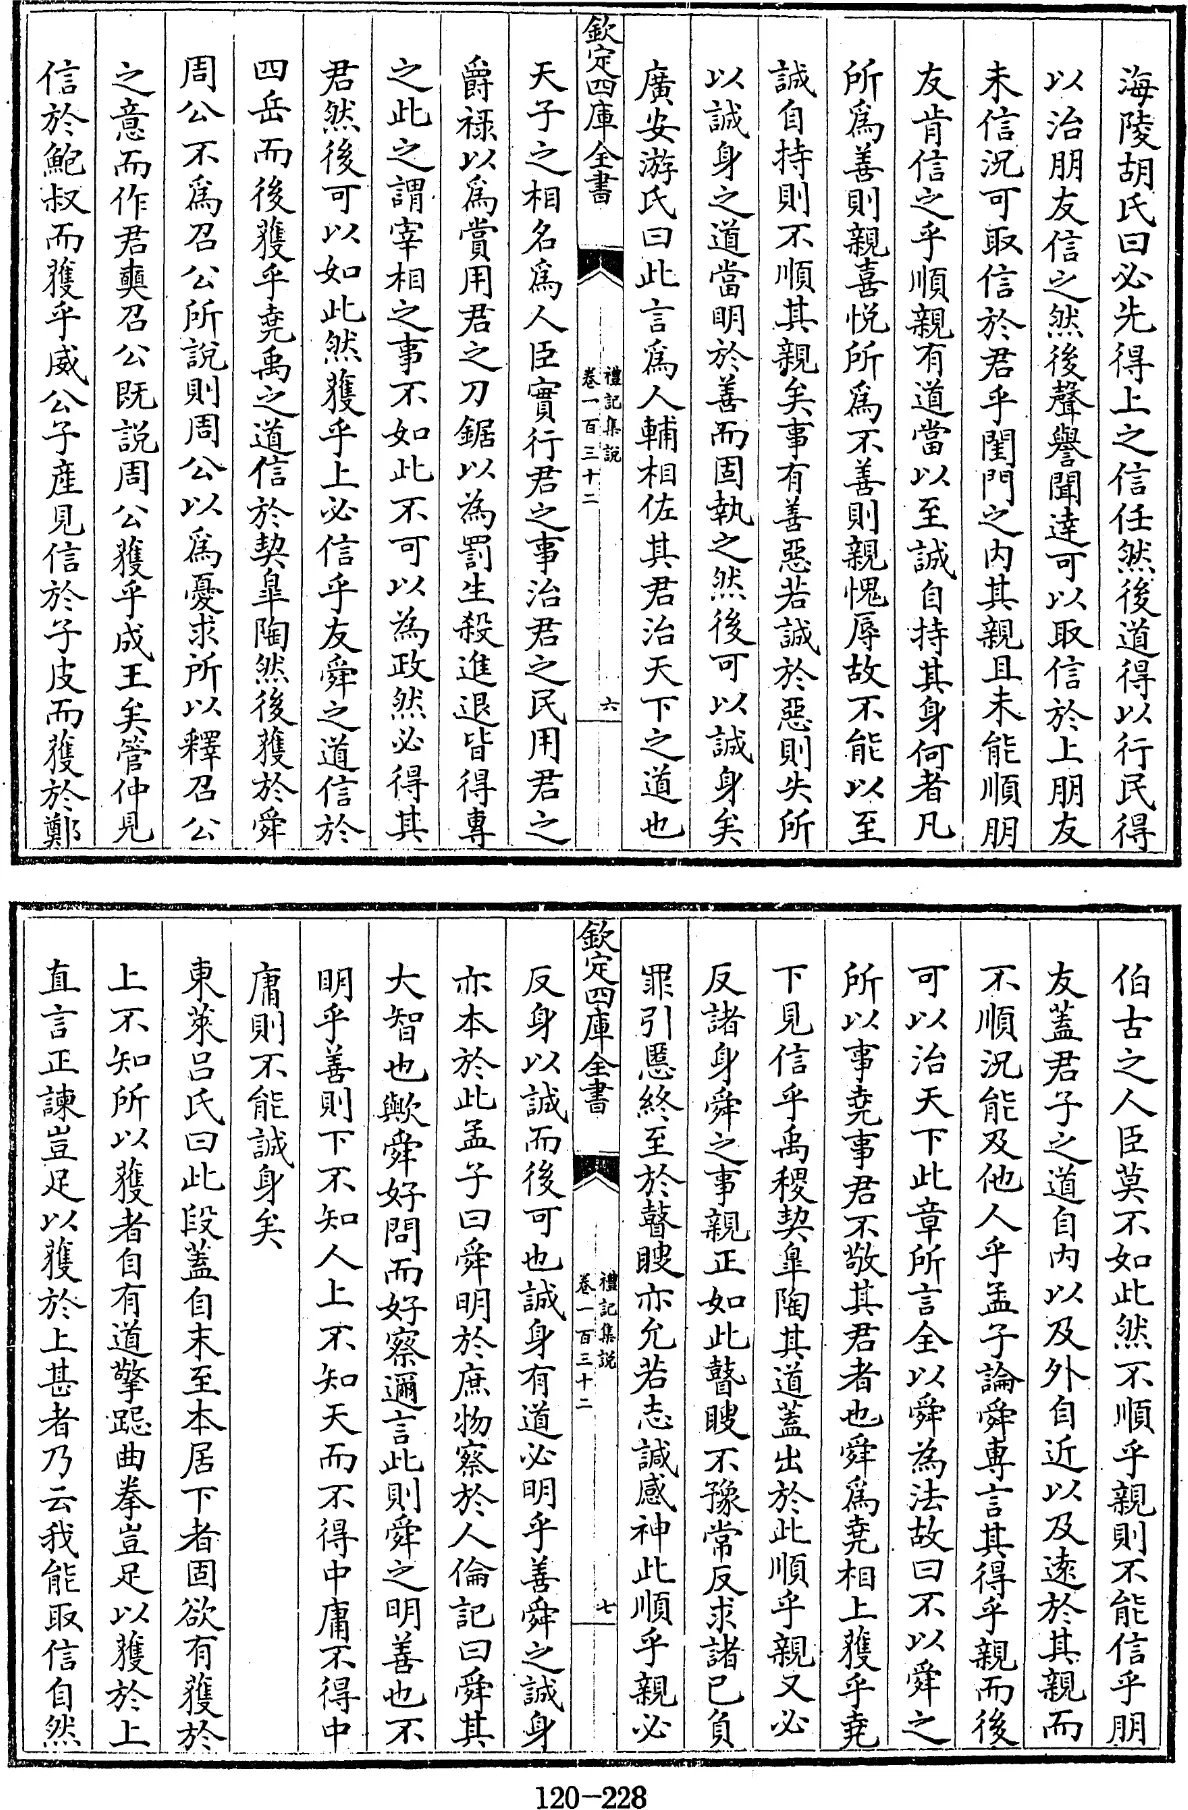 海陵胡氏曰必先得上之信任然後道得以行民得
以治朋友信之然後聲譽聞達可以取信於上朋友
未信況可取信於君乎閨門之内其親且未能順朋
友肯信之乎順親有道當以至誠自持其身何者凡
所爲善則親喜悦所爲不善則親愧辱故不能以至
誠自持則不順其親矣事有善惡若誠於惡則失所
以誠身之道當明於善而固執之然後可以誠身矣
廣安游氏曰此言爲人輔相佐其君治天下之道也
欽定四庫全書
禮記集説
卷一百三十二
六
天子之相名爲人臣實行君之事治君之民用君之
爵禄以爲賞用君之刀鋸以為罰生殺進退皆得專
之此之謂宰相之事不如此不可以為政然必得其
君然後可以如此然獲乎上必信乎友舜之道信於
四岳而後獲乎堯禹之道信於契臯陶然後獲於舜
周公不爲召公所説則周公以爲憂求所以釋召公
之意而作君奭召公既説周公獲乎成王矣管仲見
信於鮑叔而獲乎威公子産見信於子皮而獲於鄭
伯古之人臣莫不如此然不順乎親則不能信乎朋
友蓋君子之道自内以及外自近以及逺於其親而
不順況能及他人乎孟子論舜專言其得乎親而後
可以治天下此章所言全以舜為法故曰不以舜之
所以事堯事君不敬其君者也舜爲堯相上獲乎堯
下見信乎禹稷契臯陶其道蓋出於此順乎親又必
反諸身舜之事親正如此瞽瞍不豫常反求諸已負
罪引慝終至於瞽瞍亦允若志諴感神此順乎親必
欽定四庫全書
禮記集説
卷一百三十二
七
反身以誠而後可也誠身有道必明乎善舜之誠身
亦本於此孟子曰舜明於庶物察於人倫記曰舜其
大智也歟舜好問而好察邇言此則舜之明善也不
明乎善則下不知人上不知天而不得中庸不得中
庸則不能誠身矣
東萊吕氏曰此段蓋自末至本居下者固欲有獲於
上不知所以獲者自有道擎跽曲拳豈足以獲於上
直言正諫豈足以獲於上甚者乃云我能取信自然
120-228